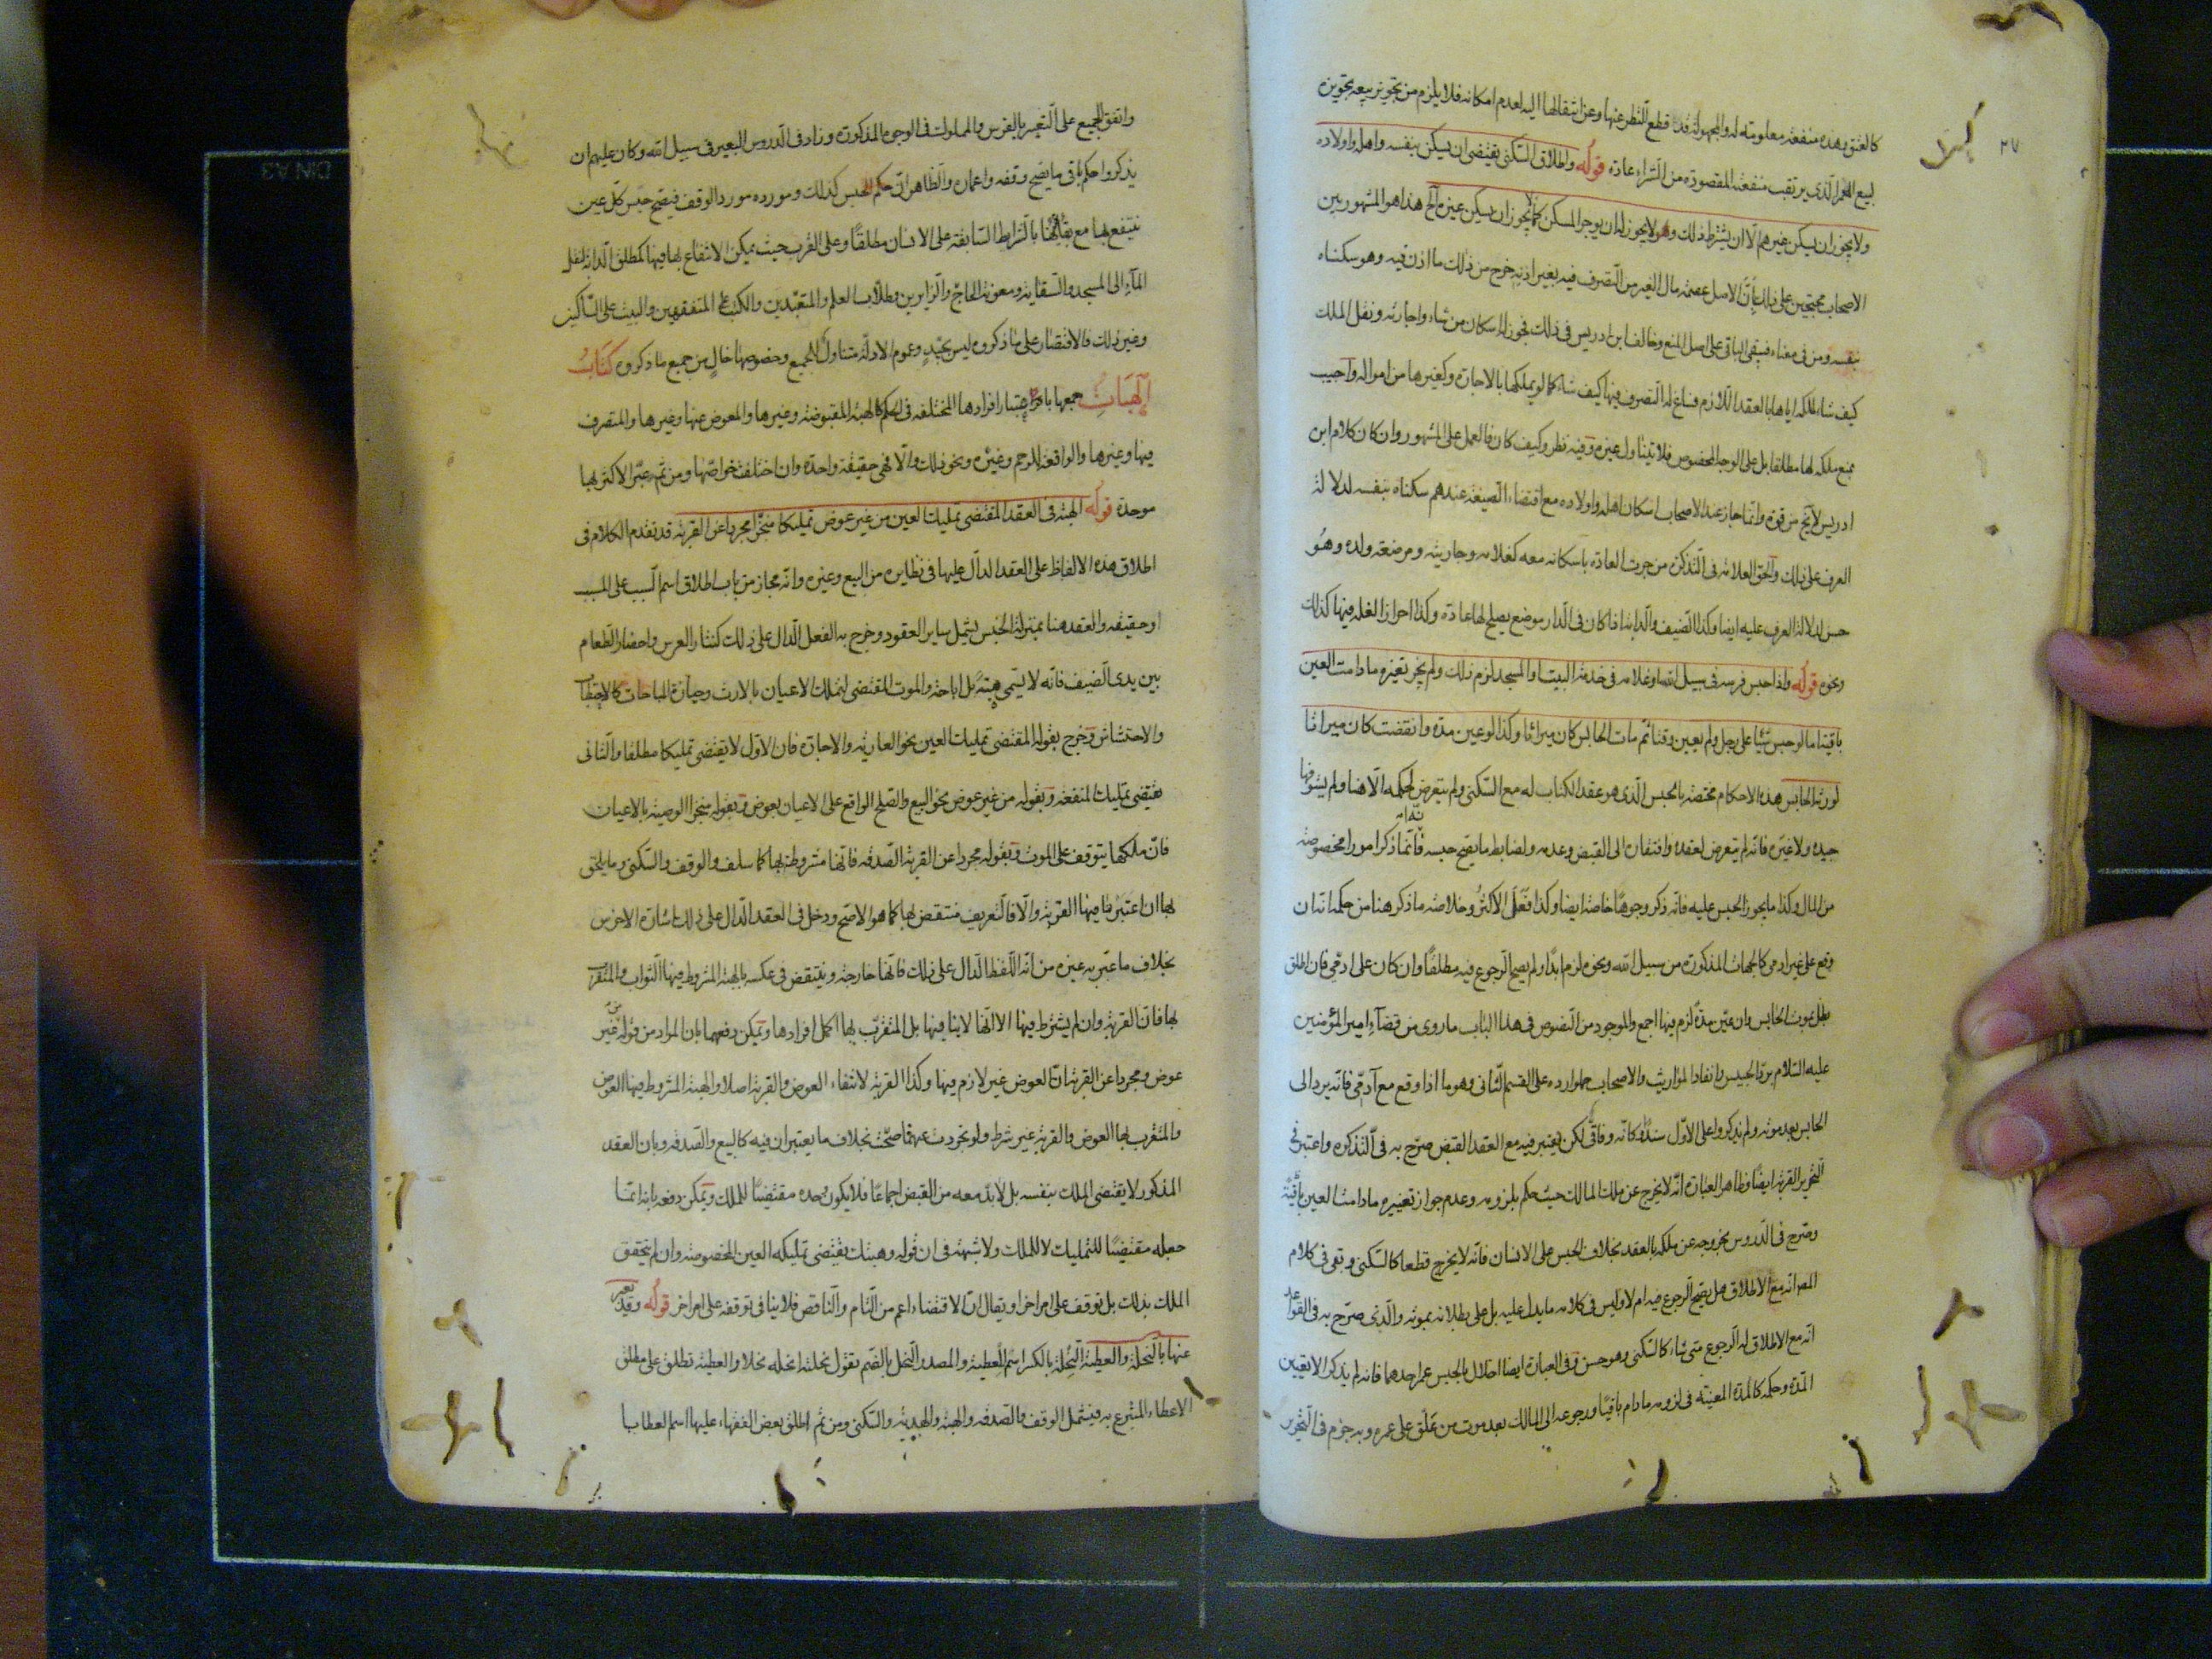 ٢٧
كالعتق بهذه منفعته معلومته له والمجهولة قد قطع النظر عنها وعن انتقالها اليه لعدم امكانه فلا يلزم من تجويز بيعه تجويزه
لبيع الذى يرتقب منفعته المقصودة من الشراء عادة قوله واطلاق السكنى يقتضى ان يسكن بنفسه واهله واولاده
ولا يجوز ان يسكن غيرهم الا ان يشترط ذلك ولا يجوز له ان يوجر المسكن كما لا يجوز ان يسكن غيره الخ هذا هو المشهور بين
الاصحاب محتجين على ذلك بان الاصل عصمة مال الغير من التصرف فيه بغير اذنه خرج من ذلك ما اذن فيه وهو سكناه
بنفسه ومن فى معناه فيبقى الباقى على اصل المنع وخالف ابن ادريس فى ذلك فجوز له اسكان من شاء واجارته ونقل الملك
كيف شاء لملكه اياها بالعقد اللازم فساغ له التصرف فيها كيف شاء كما لو يملكها بالاجارة وكغيرها من امواله واجيب
بمنع ملكه لها مطلقا بل على الوجه المخصوص فلا يتناول غيره وفيه نظر وكيف كان فالعمل على المشهور وان كان كلام ابن
ادريس لا يخ من قوة وانما جاز عند الاصحاب اسكان اهله واولاده مع اقتضاء الصيغة عندهم سكناه بنفسه لدلالة
العرف على ذلك والحق العلامة فى التذكرة من جرت العادة باسكانه معه كغلامه وجاريته ومرضعة ولده وهو
حسن لدلالة العرف عليه ايضا وكذا الضيف والدابة اذا كان فى الدار موضع يصلح لها عادة وكذا احراز الغلة فيها كذلك
ونحوه قوله واذا حبس فرسه فى سبيل الله او غلامه فى خدمة البيت او المسجد لزم ذلك ولم يجز تغيره ما دامت العين
باقية اما لو حبس شيئا على رجل ولم يعين وقتا ثم مات الحابس كان ميراثا وكذا لو عين مدة وانقضت كان ميراثا
لورثة الحابس هذه الاحكام مختصة بالحبس الذى هو عقد الكتاب له مع السكنى ولم يتعرض لحكمه الا هنا ولم يستوفها
جيدا ولا غيره فانه لم يتعرض لعقده وافتقاره الى القبض وعدمه ولضابط ما يصح حبسه فانما ذكر امورا مخصوصة
من المال وكذا ما يجوز الحبس عليه فانه ذكر وجوها خاصة ايضا وكذا فعل الاكثر وخلاصة ما ذكر هنا من حكمه انه ان
وقع على غير ادمى كالجهات المذكورة من سبيل الله ونحوه لزم ابدا ولم يصح الرجوع فيه مطلقا وان كان على ادمى فان اطلق
بطل بموت الحابس وان عين مدة لزم فيها اجمع والموجود من النصوص فى هذا الباب ما روى من قضاء امير المؤمنين
عليه السلام برد الحبيس وانفاذ المواريث والاصحاب حملوا رده على القسم الثانى وهو ما اذا وقع مع آدمى فانه يرد الى
الحابس بعد موته ولم يذكروا على الاول سندا وكانه وفاقى لكن يعتبر فيه مع العقد القبض صرح به فى التذكرة واعتبر فى
التحرير القربة ايضا وظاهر العبارة انه لا يخرج عن ملك المالك حيث حكم بلزومه وعدم جواز تغييره ما دامت العين باقية
وصرح فى الدروس بخروجه عن ملكه بالعقد بخلاف الحبس على الانسان فانه لا يخرج قطعا كالسكنى وبقى فى كلام
المص انه مع الاطلاق هل يصح الرجوع فيه ام لا وليس فى كلامه ما يدل عليه بل على بطلانه بموته والذى صرح به فى القواعد
انه مع الاطلاق له الرجوع متى شاء كالسكنى وهو حسن وفى العبارة ايضا اخلال بالحبس عمر احدهما فانه لم يذكر الا تعيين
المدة وحكمه كالمدة المعينة فى لزومه ما دام باقيا ورجوعه الى المالك بعد موت من علق على عمره وبه جزم فى التحرير
واتفق الجميع على التعبير بالفرس والمملوك فى الوجوه المذكورة وزاد فى الدروس البعير فى سبيل الله وكان عليهم ان
يذكروا حكم باقى ما يصح وقفه واعماره والظاهر ان حكم الحبس كذلك ومورده مورد الوقف فيصح حبس كل عين
ينتفع بها مع بقائها بالشرايط السابقة على الانسان مطلقا وعلى القرب حيث يمكن الانتفاع بها فيها كمطلق الدابة لنقل
الماء الى المسجد والسقاية ومعونة الحاج والزايرين وطلاب العلم والمتعبدين والكتب على المتفقهين والبيت على المساكين
وغير ذلك فالاقتصار على ما ذكروه ليس بجيد وعموم الادلة متناول للجميع وخصوصها خال من جميع ما ذكروه كتاب
الهبات جمعها باعتبار افرادها المختلفة فى الحكم كالهبة المقبوضة وغيرها والمعوض عنها وغيرها والمتصرف
فيها وغيرها والواقعة للرحم وغيره ونحو ذلك والا فهى حقيقة واحدة وان اختلفت خواصها ومن ثم عبر الاكثر بها
موحدة قوله الهبة هى العقد المقتضى تمليك العين من غير عوض تمليكا منجزا مجردا عن القربة قد تقدم الكلام فى
اطلاق هذه الالفاظ على العقد الدال عليها فى نظايره من البيع وغيره وانه مجاز من باب اطلاق اسم السبب على المسبب
او حقيقة والعقد هنا بمنزلة الجنس يشمل ساير العقود وخرج به الفعل الدال على ذلك كنثار العرس واحضار الطعام
بين يدى الضيف فانه لا يسمى هبة بل اباحة والموت المقتضى لتملك الاعيان بالارث وحيازة المباحات كالاحتطاب
والاحتشاش وخرج بقوله المقتضى تمليك العين نحو العارية والاجارة فان الاول لا يقتضى تمليكا مطلقا والثانى
يقتضى تمليك المنفعة وبقوله من غير عوض نحو البيع والصلح الواقع على الاعيان بعوض وبقوله منجزا الوصية بالاعيان
فان ملكها يتوقف على الموت وبقوله مجردا عن القربة الصدقة فانها مشروطة بها كما سلف والوقف والسكنى وما يلحق
بها ان اعتبرنا فيها القربة والا فالتعريف منتقض بها كما هو الاصح ودخل فى العقد الدال على ذلك اشارة الاخرس
بخلاف ما عبر به غيره من انه اللفظ الدال على ذلك فانها خارجة وينتقض فى عكسه بالهبة المشروط فيها الثواب والمتقرب
بها فان القربة وان لم يشترط فيها الا انها لا ينافيها بل المتقرب بها اكمل افرادها ويمكن دفعهما بان المراد من قوله من غير
عوض ومجردا عن القربة ان العوض غير لازم فيها وكذا القربة لا انتفاء العوض والقربة اصلا والهبة المشروط فيها العوض
والمتقرب بها العوض والقربة غير شرط ولو تجردت عنهما صحت بخلاف ما يعتبران فيه كالبيع والصدقة وبان العقد
المذكور لا يقتضى الملك بنفسه بل لا بد معه من القبض اجماعا فلا يكون وحده مقتضيا للملك ويمكن دفعه بانه انما
جعله مقتضيا للتمليك لا للملك ولا شبهة فى ان قوله وهبتك يقتضى تمليكه العين المخصوصة وان لم يتحقق
الملك بذلك بل توقف على امر اخر او يقال ان الاقتضاء اعم من التام والناقص فلا ينافى توقفه على امر اخر قوله وقد يعبر
عنها بالنحلة والعطية النحلة بالكسر اسم للعطية والمصدر النحل بالضم تقول نحلته انحله نحلا والعطية تطلق على مطلق
الاعطاء المتبرع به فيشمل الوقف والصدقة والهبة والهدية والسكنى ومن ثم اطلق بعض الفقهاء عليها اسم العطايا